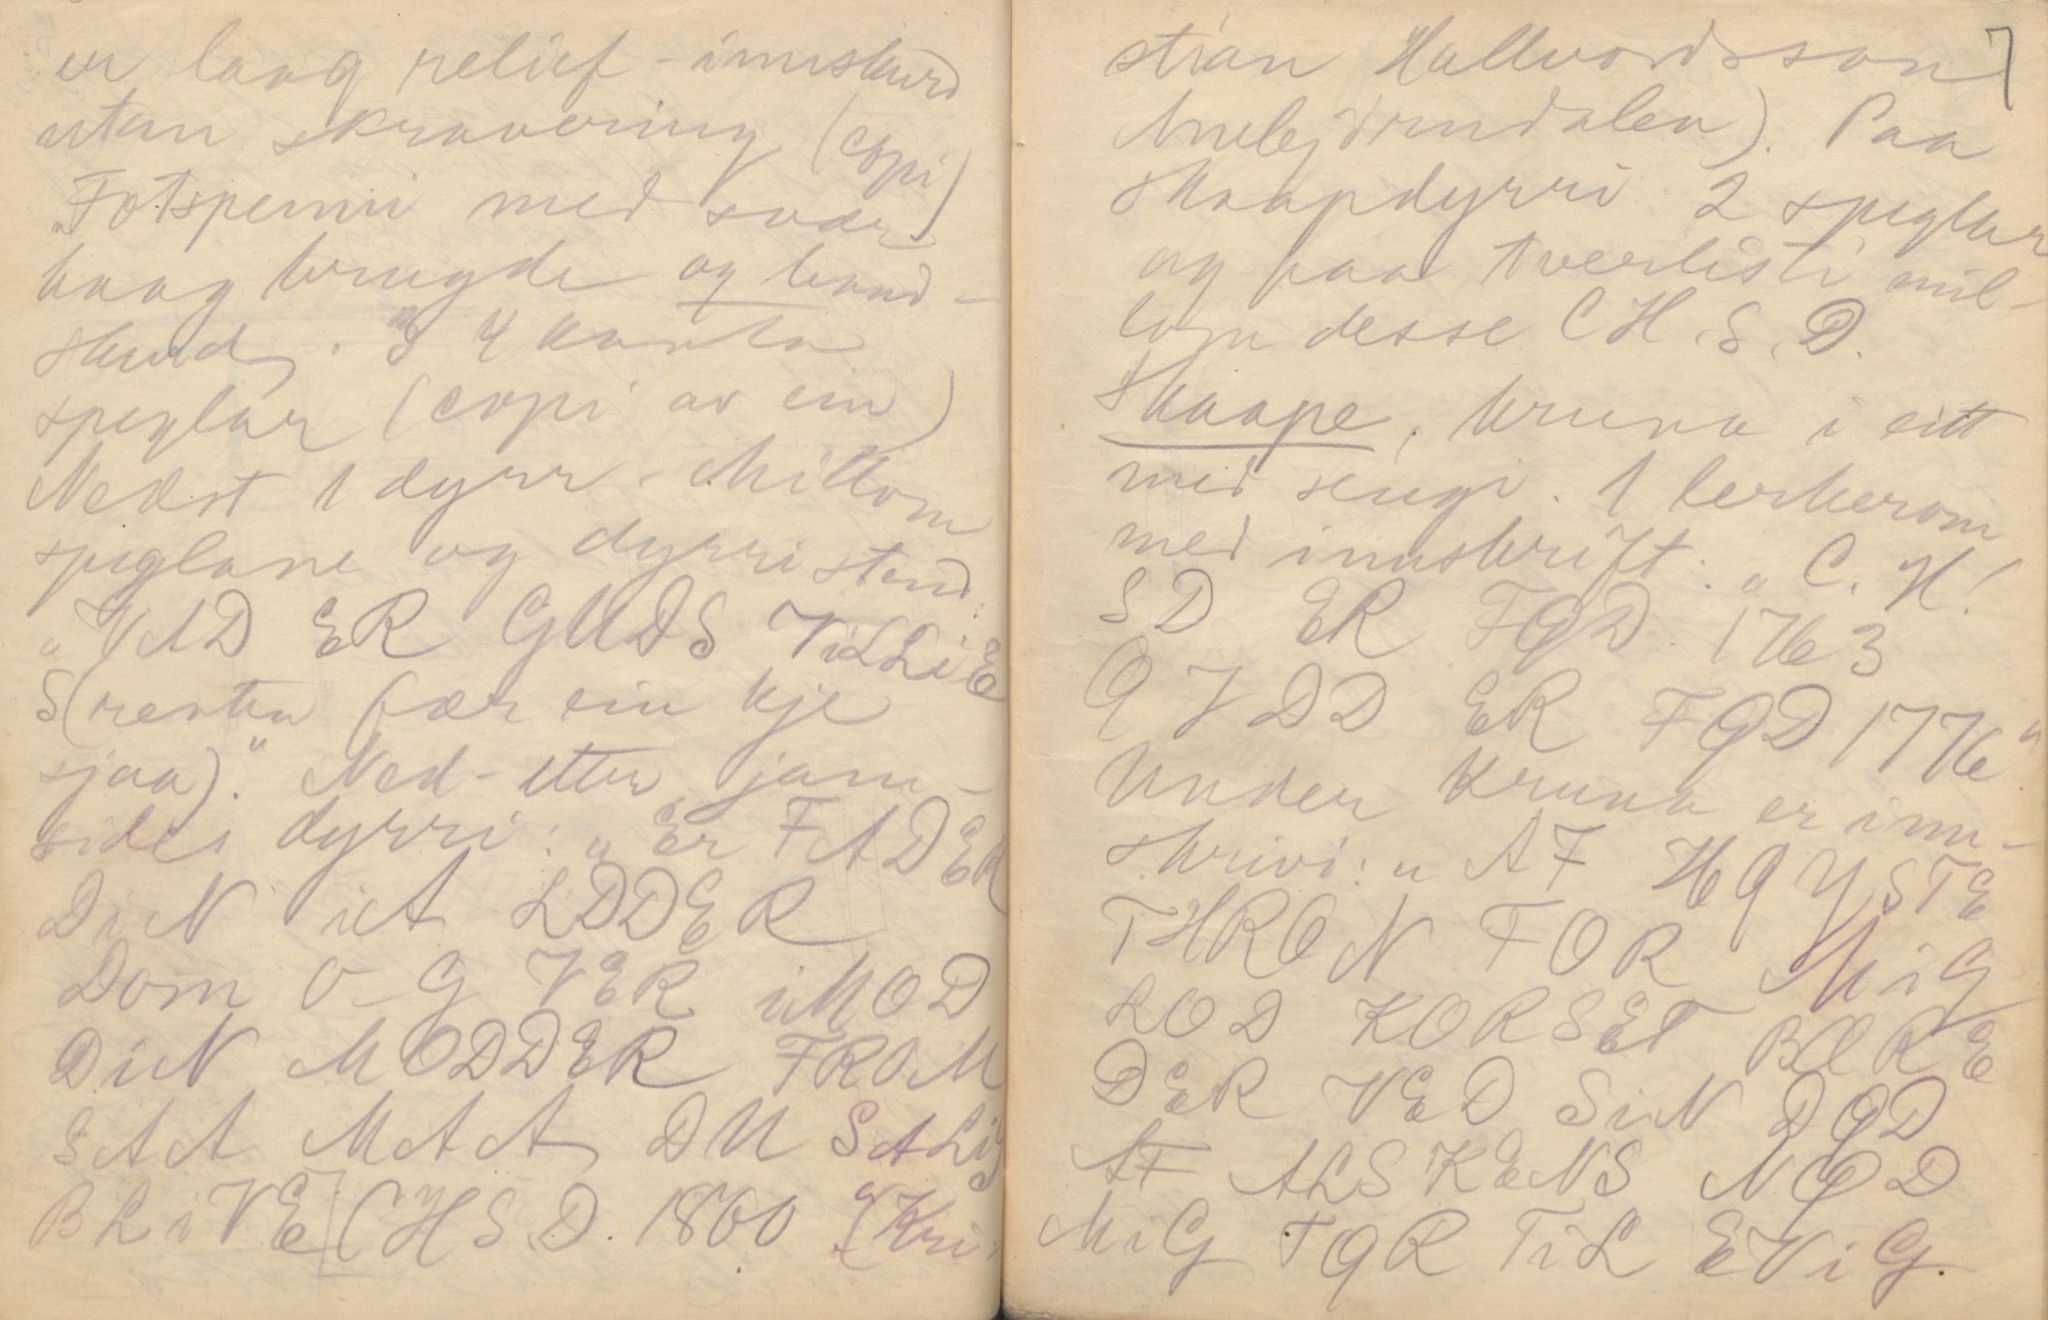 er laag relief - innskurd
utan skravering (copi)
"Fotspenni med svær
haag brugde og band-
skurd. I 4 kanta
speglar (copi av ein)
Nedst 1 dyrr. Millom
speglane og dyrri stend:
"VAD ER GUDS ViLLiE
S (resten fær ein kje
sjaa)." Ned-etter jam-
sides dyrri: "Er FADER
DiN iA LDDER
Dom O-G VER iMOD
DiN MODDER FROM
SAA MAA DU SALiG
BLiVE [CHSD. 1800 (Kri-
7
stian Hallvordsson
). Paa
skaapdyrri 2 speglar
og paa tverlisti mil-
lom desse C H. S. D.
Skaape, kruna i eitt
med sengi. 1 lerkerom
med innskrift: "C. H.
SD ER FQD. 1763
Q J DD ER FQD 1776"
Under kruna er inn-
skrivi: "AF HQYSTE
THRON FOR MiG
LOD KORSET BÆRE
DER VED SiN DQD
AF ALSKENS NQD
MiG FQR TiL EViG